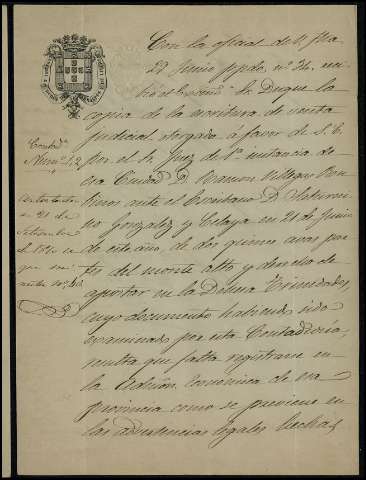 Con la oficial de V. fha
21 Junio ppdo. nº 34, re
el Duque la
copia de la escritura de venta
judicial otorgada á favor de S. E.
por el Sr. Juez de 1ª instancia de
esa Ciudad D. Ramon Villegas
ante el Escribano D. Saturni
no Gonzalez y Celaya en 21 de Junio
de este año, de dos quince avas par
tes del monte alto y derecho de
apostar en la Dehesa Trinidades,
cuyo documento habiendo sido
examinado por esta Contaduría,
resulta que falta registrarse en
la Admon. Económica de esa
provincia como se previene en
las advertencias legales hechas
Contadª
Núm. 42
Contestada
en 21 de
Setiembre